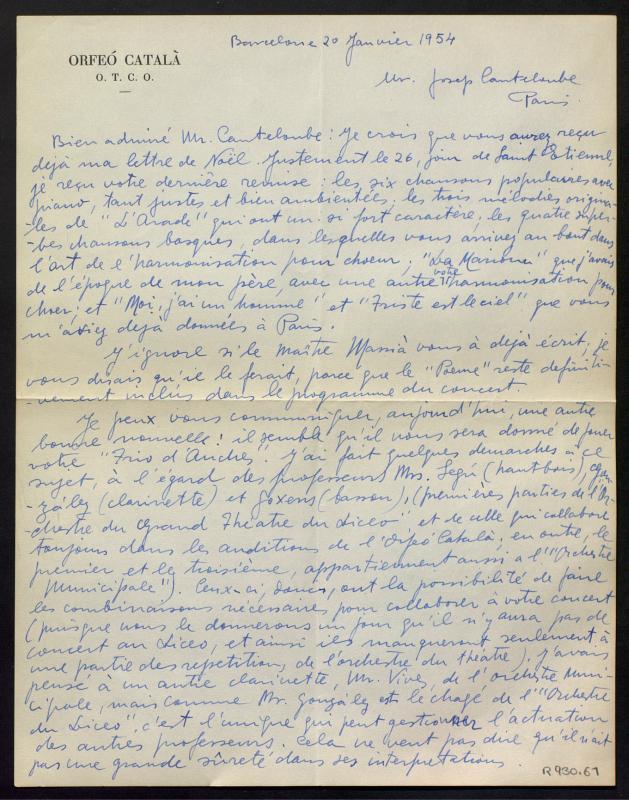 ORFEÓ CATALÀ
O. T. C. O.
Barcelone 20 Janvier 1954
Mr. Josep Canteloube
Paris.
Bien admiré Mr. Canteloube: Je crois que vous aurez reçu
déjà ma lettre de Noël. Justement le 26, jour de Saint Etienne,
je reçu votre dernière remise: les six chansons populaires avec
piano, tant justes et bien ambientées, les trois mélodies origina-
-les de "L'Arade" qui ont un si fort caractère, les quatre super-
bes chansons basques, dans lesquelles vous arrivez au bout dans
l'art de l'harmonisation pour choeur; "La Marione" que j'avais
de l'époque de mon père, avec une autre votre harmonisation pour
choer; et "Moi, j'ai un homme" et "Triste est le ciel" que vous
m'aviez dejà données à Paris.
J'ignore si le Maître Massià vous à déjà écrit; je
vous disais qu'il le ferait, parce que le "Poème" reste definiti-
-vement inclus dans le programme du concert.
Je peux vous communiquer, aujourd'hui, une autre
bonne nouvelle: il semble qu'il nous sera donné de jouer
votre "Trio d'Anches". J'ai fait quelques demarches à ce
sujet, à l'égard des professeurs Mrs. Segú (hautbois), Gon-
zález (clarinette) et Goxens (basson), (premières parties de l'Or-
chestre du Grand Théatre du Liceo", et de celle qui collabore
toujours dans les auditions de l'Orfeó Català; en outre, le
premier et le troisième, appartiennent aussi a l'"Orchestre
Municipale"). Ceux-ci, donc, ont la possibilité de faire
les combinaisons nécessaires pour collaborer à votre concert
(puisque nous le donnerons un jour qu'il n'y aura pas de
concert au Liceo, et ainsi ils manqueront seulement à
une partie des repetitions de l'orchestre du théatre). J'avais
pensé à un autre clarinette, Mr. Vives, de l'orchestre Muni-
cipale, mais comme Mr. González est le chagé de l'"Orchestre
du Liceo", c'est l'unique qui peut gestionner l'actuation
des autres professeurs. Cela ne veut pas dire qu'il n'ait
pas une grande sûreté dans ses interpretations.
R 930.61